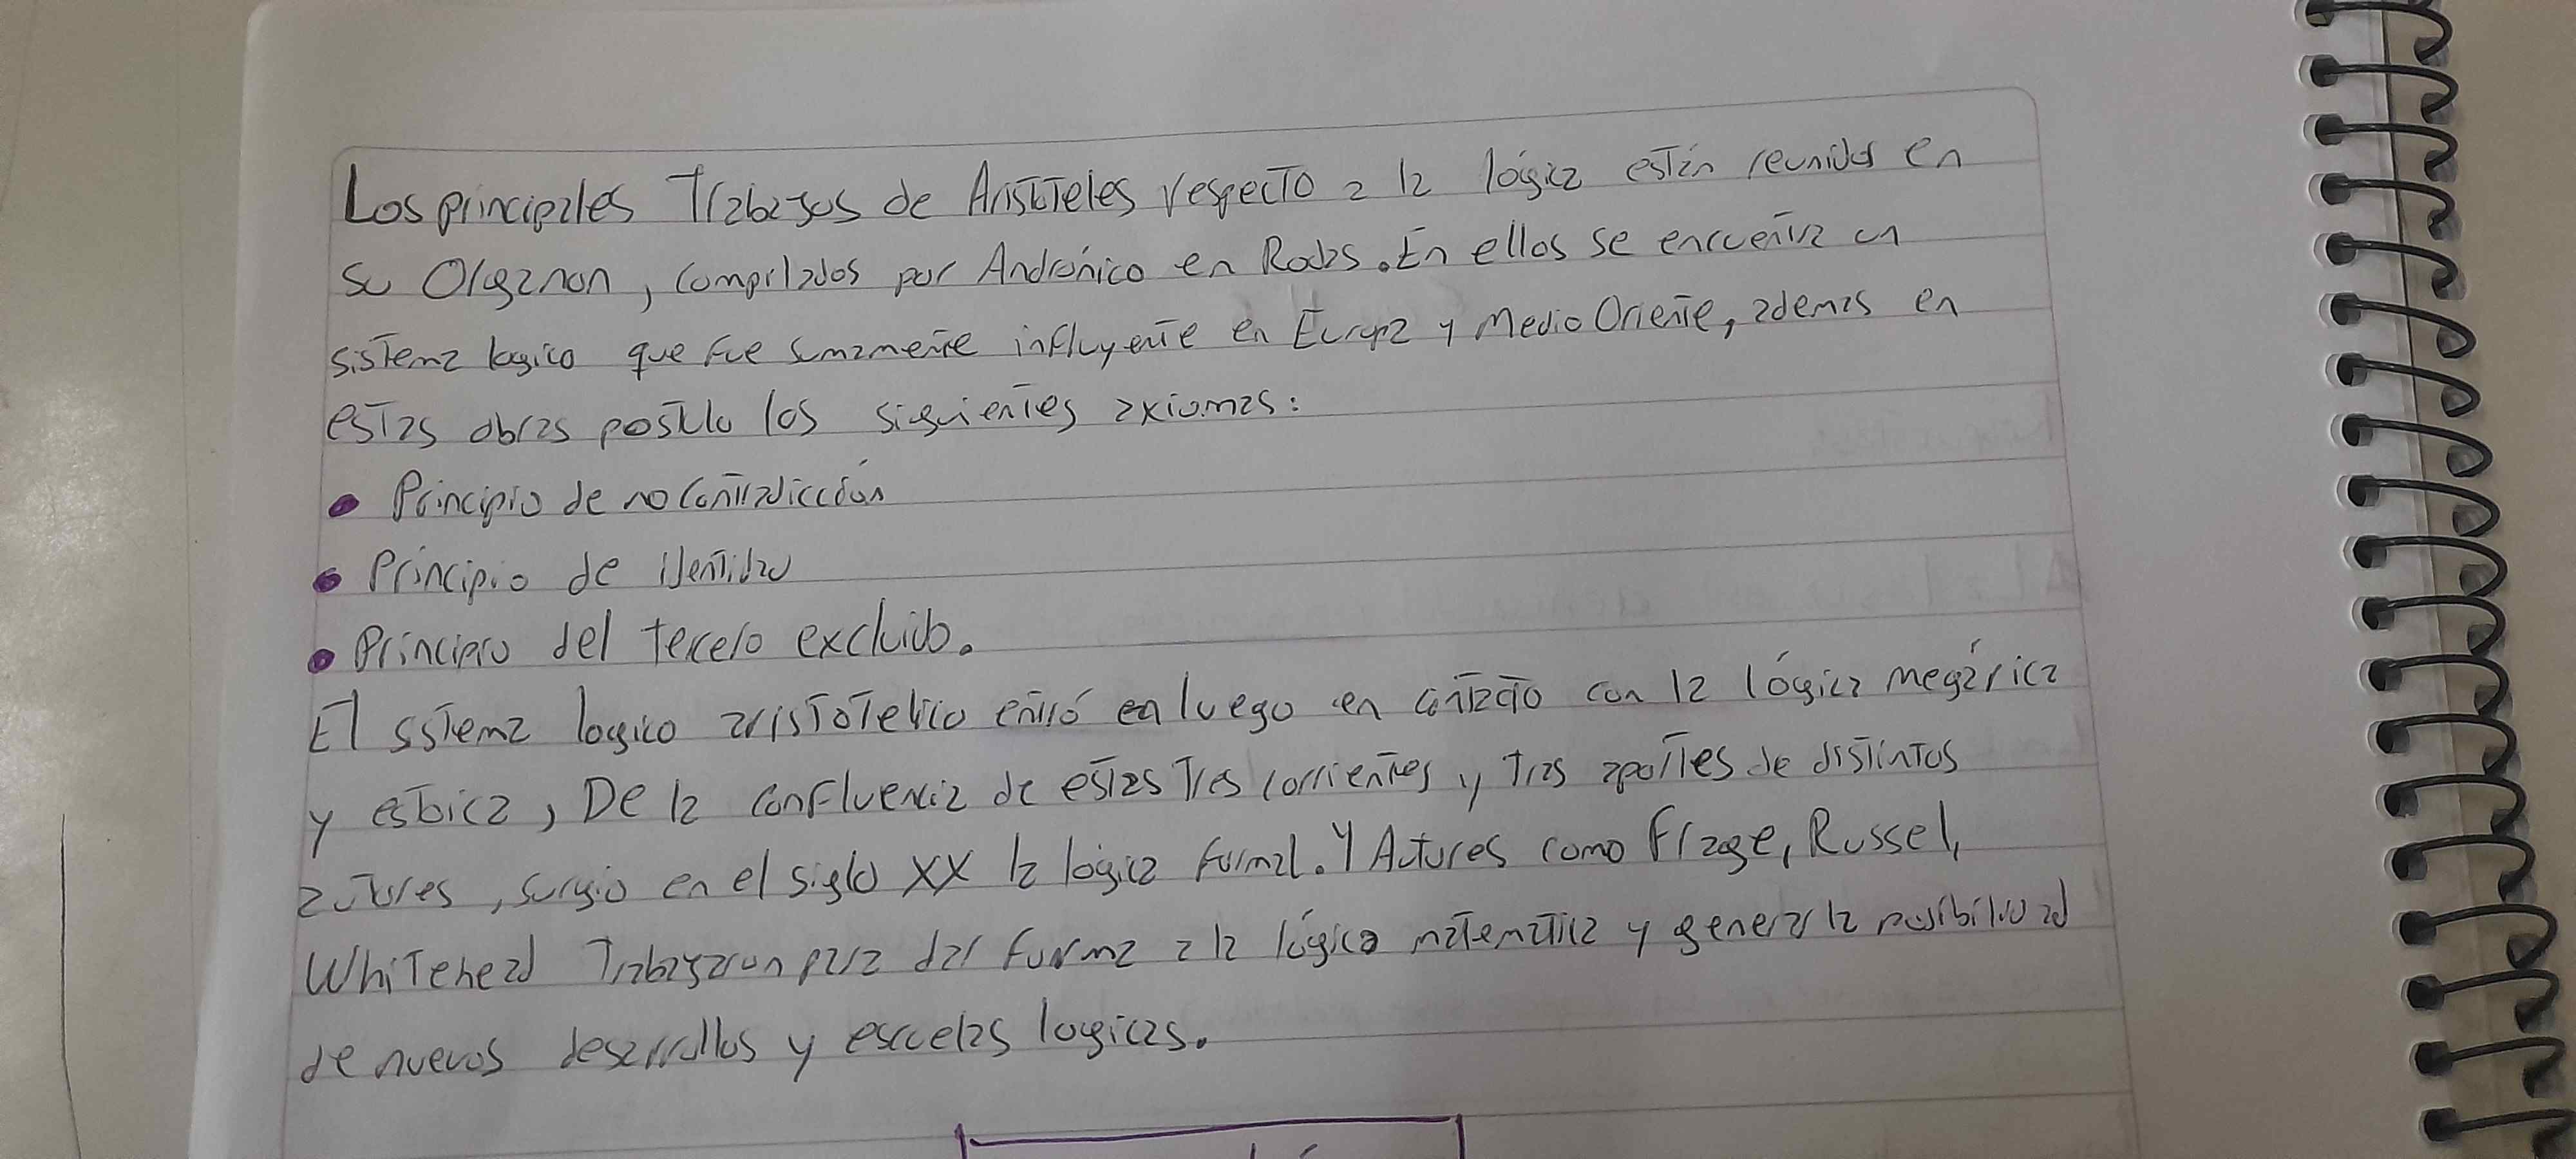 Los principales Trabajos de Aristoteles respecto a la lógica están reunidos en
su Organon, compilados por Andrónico en Rodas. En ellos se encuentra un
sistema logico que fue sumamente influyente en Europa y Medio Oriente, ademas en
estas obras postulo los siguientes axiomas:
• Principio de no Contradicción
• Principio de identidad
• Principio del tercero excluido.
El sstema logico aristotelico entró en luego en contacto con la lógica megárica
y estoica, De la confluencia de estas Tres corrientes y tras aportes de distintos
autores, surgio en el siglo XX la lógica formal. Y Autores como Frage, Russel,
Whitehead Trabajaron para dar forma a la lógica matematica y generar la posibilidad
de nuevos desarrollos y escuelas logicas.